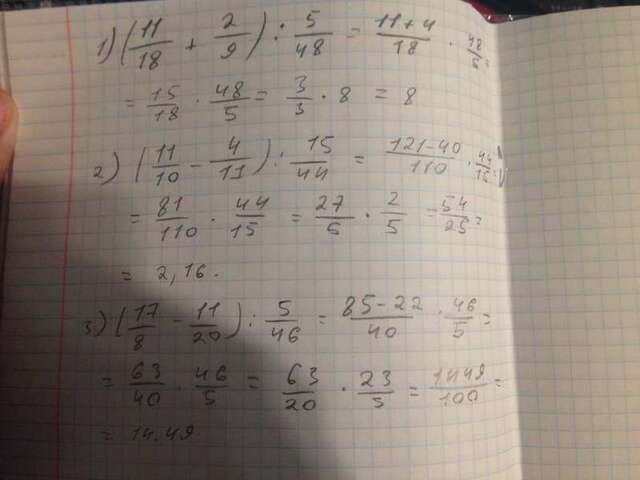 1) (11/18 + 2/9) : 5/48 = 11+4/18 · 48/5 =
= 15/18 · 48/5 = 3/3 · 8 = 8
2) (11/10 - 4/11) : 15/44 = 121-40/110 · 44/15 =
= 81/110 · 44/15 = 27/5 · 2/5 = 54/25 =
= 2,16.
3) (17/8 - 11/20) : 5/46 = 85-22/40 · 46/5 =
= 63/40 · 46/5 = 63/20 · 23/5 = 1449/100 =
= 14.49